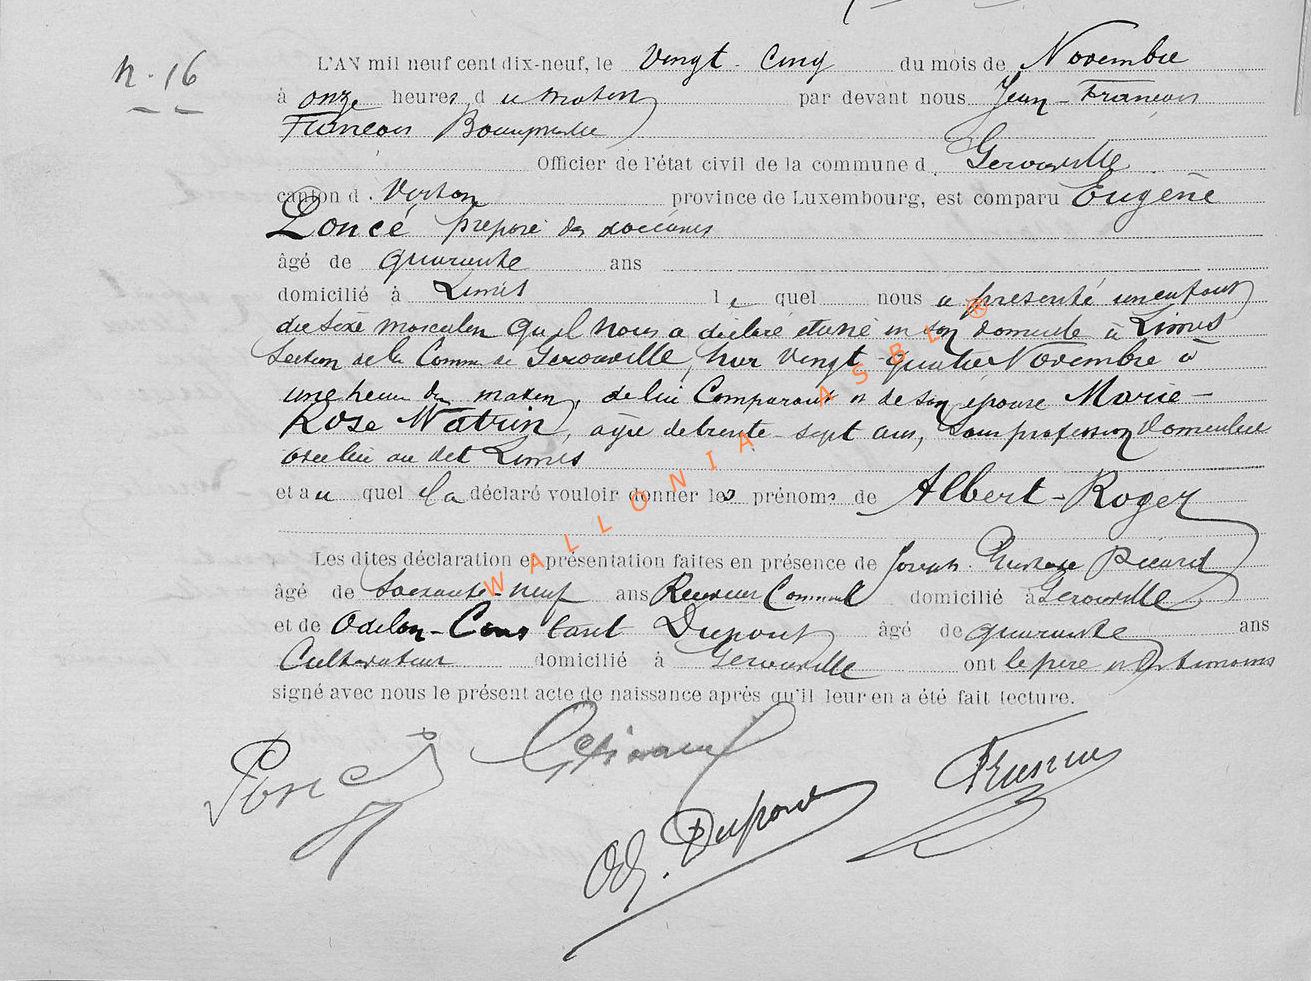 N. 16
L'AN mil neuf cent dix-neuf, le Vingt-Cinq du mois de Novembre
à onze heures du matin par devant nous Jean-François
François
Officier de l'état civil de la commune d Gerouville
canton d. Virton province de Luxembourg, est comparu Eugène
Poncé préposé des douanes
âgé de quarante ans
domicilié à Limes le quel nous a présenté un enfant
du sexe masculin qu'il nous a déclaré être né en son domicile à Limes
Section de la Comm de Gerouville, hier vingt-quatre Novembre à
une heure du matin, de lui Comparant et de son épouse Marie-
Rose Watrin, agée de trente-sept ans, Sans profession domiciliée
avec lui au dit Limes
et au quel il a déclaré vouloir donner les prénoms de Albert-Roger
Les dites déclaration et présentation faites en présence de Joseph Gustave Picard
âgé de Soixante-neuf ans Receveur Communal domicilié à Gerouville
et de Odelon-Constant Dupont âgé de quarante ans
Cultivateur domicilié à Gerouville ont le père et les témoins
signé avec nous le présent acte de naissance après qu'il leur en a été fait lecture.
Poncé
Od. Dupont
WALLONIA ASBL ®